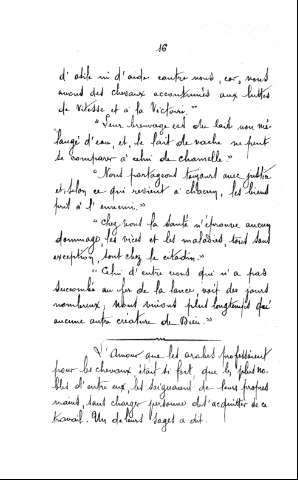 16
d'asile ni d'aide contre nous, car, nous
avons des chevaux accoutumés aux luttes
de vitesse et à la Victoire."
"Leur breuvage est du lait non mé-
langé d'eau, et, le lait de vache ne peut
se comparer à celui de chamelle."
"Nous partageons toujours avec justice
et, selon ce qui revient à chacun, les biens
pris à l'ennemi."
"Chez nous la santé n'éprouve aucun
dommage, les vices et les maladies, tous sans
exception, sont chez le citadin."
"Celui d'entre nous qui n'a pas
succombé au fer de la lance, voit des jours
nombreux; Nous vivons plus longtemps qu'
aucune autre créature de Dieu."
L'Amour que les arabes professaient
pour les chevaux était si fort que les plus no-
bles d'entre eux, les soignaient de leurs propres
mains, sans charger personne de s'acquitter de ce
travail. Un de leurs sages a dit.